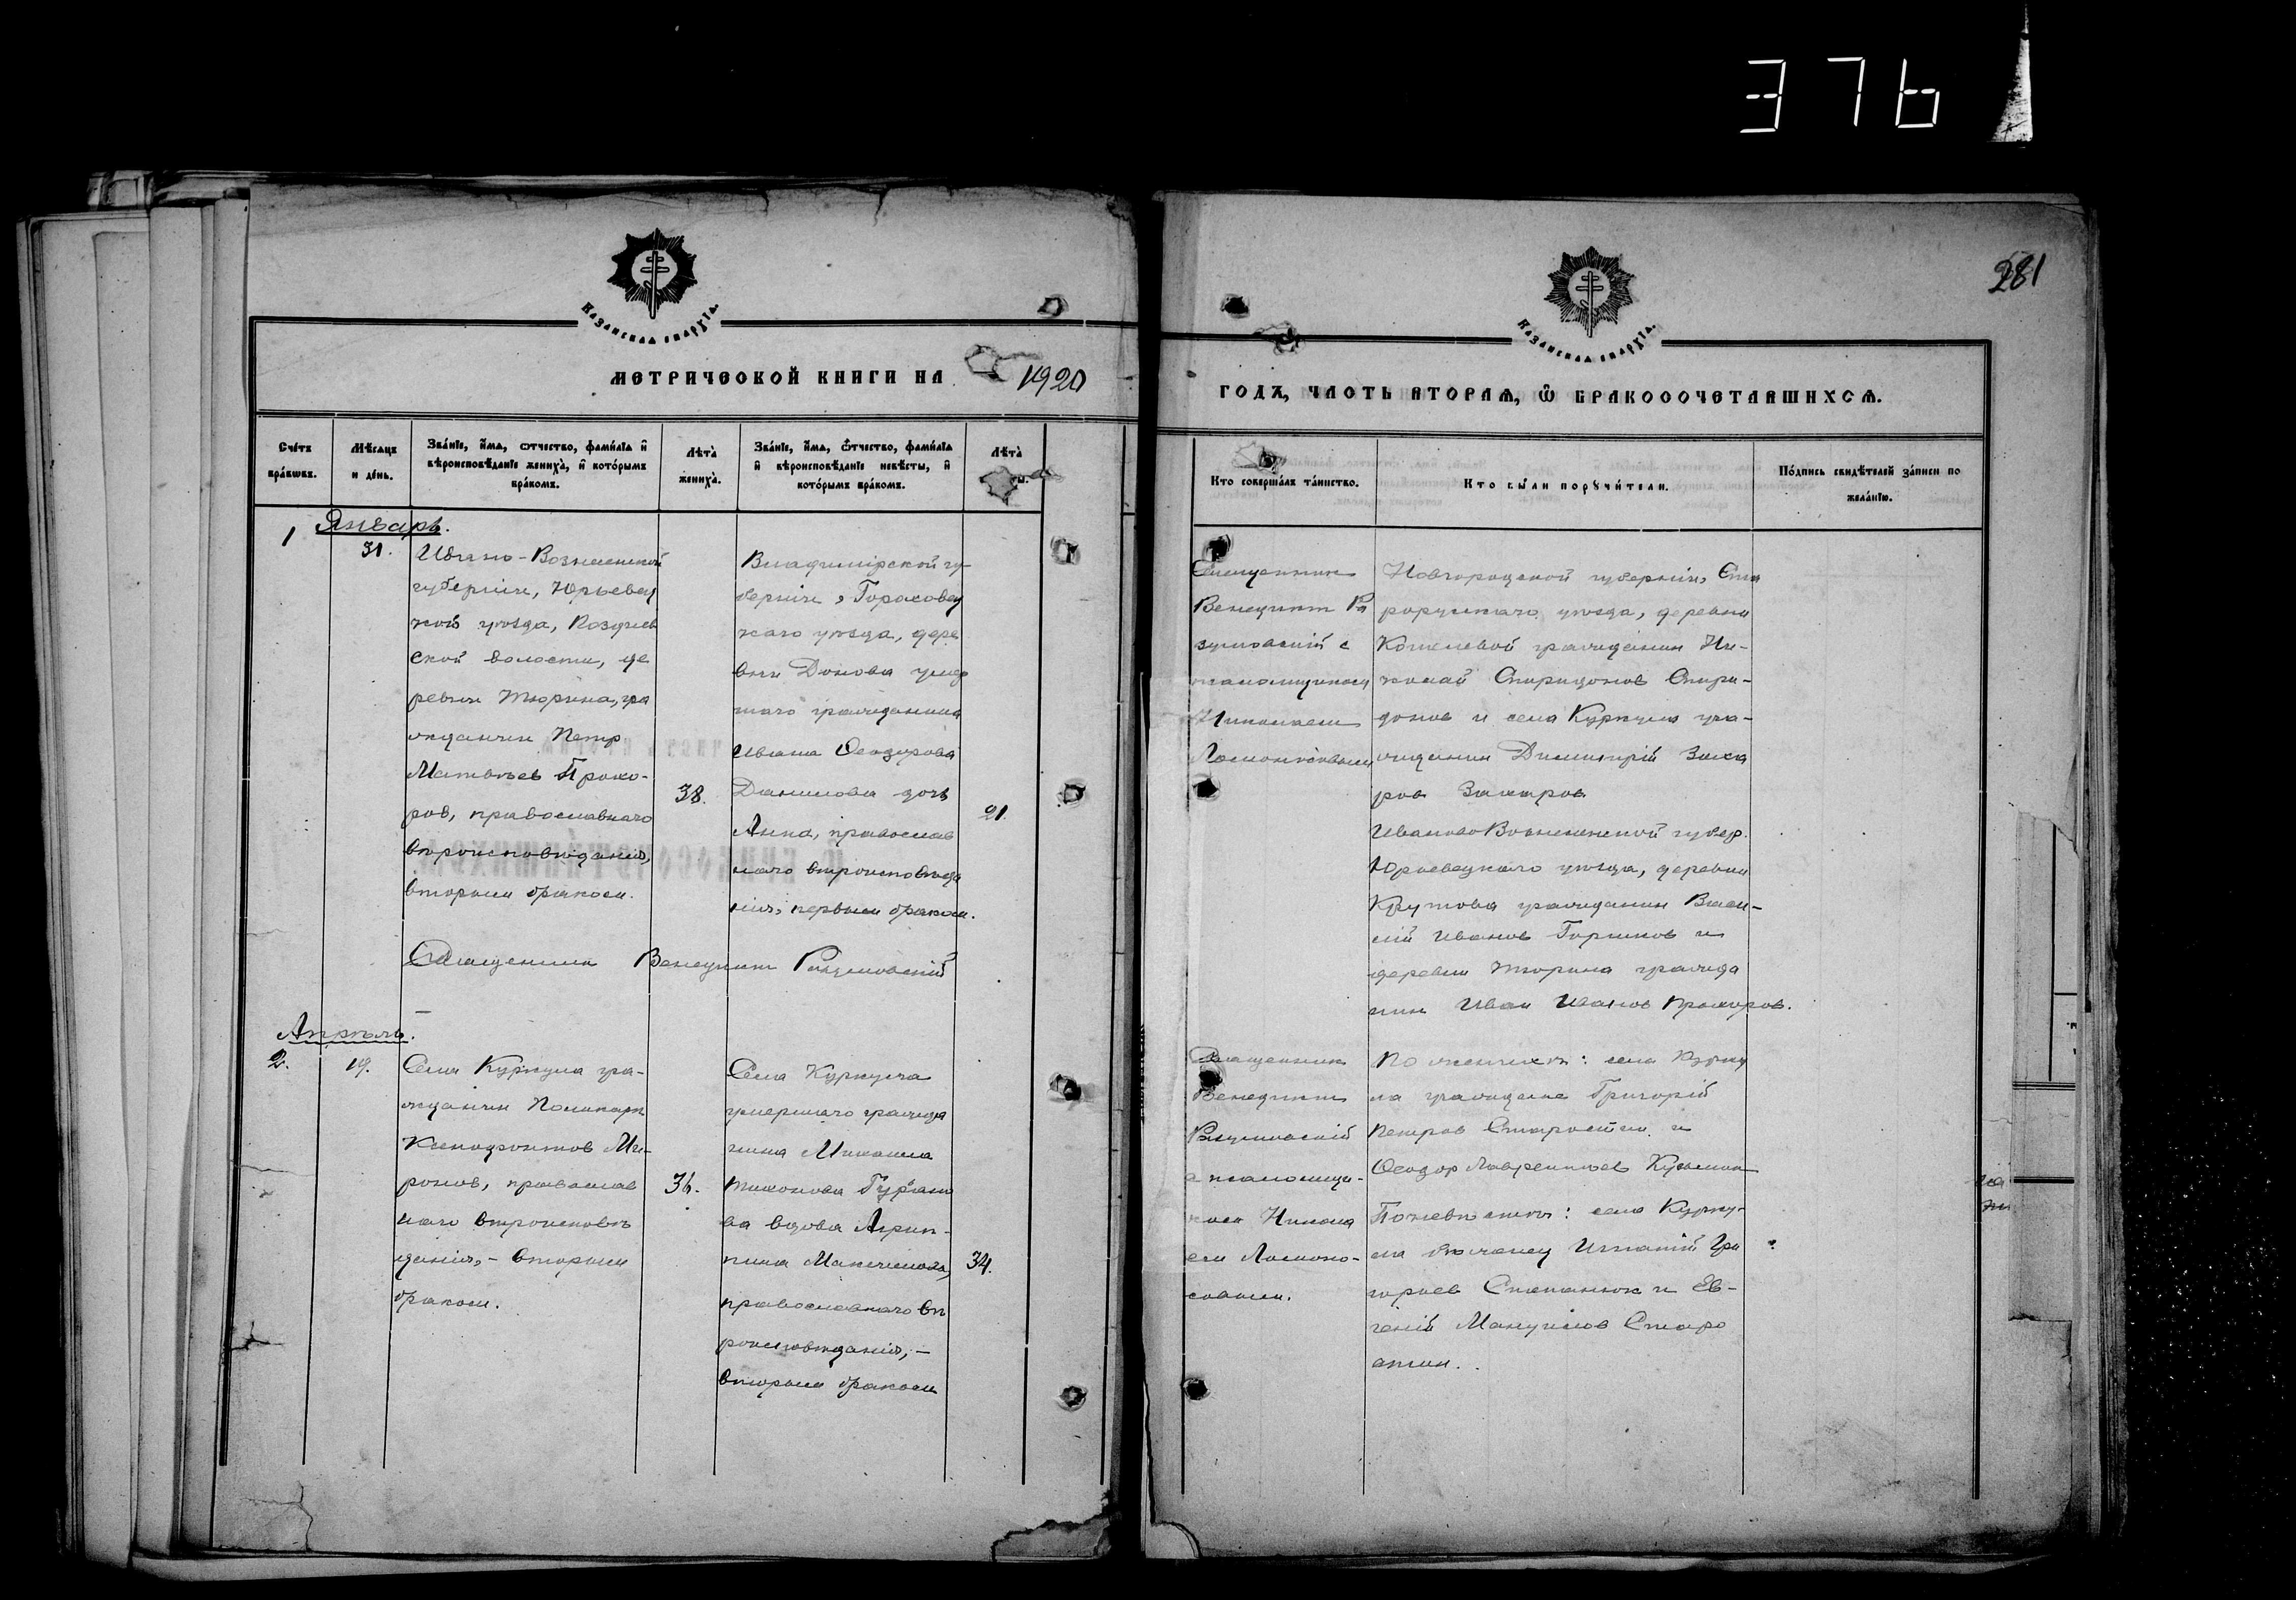 376
281
Казанская епархія.
МЕТРИЧЕСКОЙ КНИГИ НА 1920
Казанская епархія.
ГОДЪ, ЧАСТЬ ВТОРАЯ, Ѿ БРАКОСОЧЕТАВШИХСЯ.
Счетъ браковъ.
Мѣсяцъ и день.
Званіе, имя, отчество, фамилія и
вѣроисповѣданіе жениха, и которымъ
бракомъ.
Лѣта
жениха.
Званіе, имя, отчество, фамилія
и вѣроисповѣданіе невѣсты, и
которымъ бракомъ.
Лѣта
Кто совершалъ таинство.
Кто были поручители.
Подпись свидѣтелей записи по
желанію.
Январь.
1
31.
Ивано-Вознесенской
губерніи, Юрьевец
кой уѣзда,
ской волости, де
ревни Тюрина, гра
жданин Петр
Матвѣев Прохо-
ров, православнаго
вѣроисповѣданія,
вторым браком.
38.
Владимірской гу-
берніи, Горохове
каго уѣзда, дере
вни Донова умер
шаго гражданина
Ивана Ѳеодорова
Данилова дочь
Анна, православ
наго вѣроисповѣда
нія, первым браком.
21.
Священник Венедикт Разумовскій
Священник
Венедикт Ра
зумовскій с
псаломщиком
Николаем
Ломоносовым
Новгородской губерніи, Ста
рорусскаго уѣзда, деревни
Кошелевой гражданин Ни-
колай Спиридонов Спири-
донов и села Куркуля гра-
жданин Димитрій Заха
ров Захаров
Иваново Вознесенской губер.
Юрьевецкаго уѣзда, деревни
Крутова гражданин Васи-
лій Иванов Горшков и
деревни Тюрина гражда
нин Иван Иванов Прохоров.
Апрѣль.
2.
19.
Села Куркуля гра-
жданин Поликарп
Ксенофонтов Ми-
ронов, православ
наго вѣроисповѣ
данія, - вторым
браком.
36.
Села Куркуля
умершаго гражда
нина Михаила
Тихонова
ва вдова Агрип-
пина
православнаго вѣ
роисповѣданія, -
вторым браком
34.
Священник
Венедикт
Разумовскій
с псаломщи-
ком Никола
ем Ломоно-
совым.
По женихѣ: села Курку
ля граждане Григорій
Петров Старостин и
Ѳеодор Лаврентьев Кузьмин
По невѣстѣ: села Курку-
ля Игнатій Гри
горьев и Ев-
геній Мануилов Старо
стин.